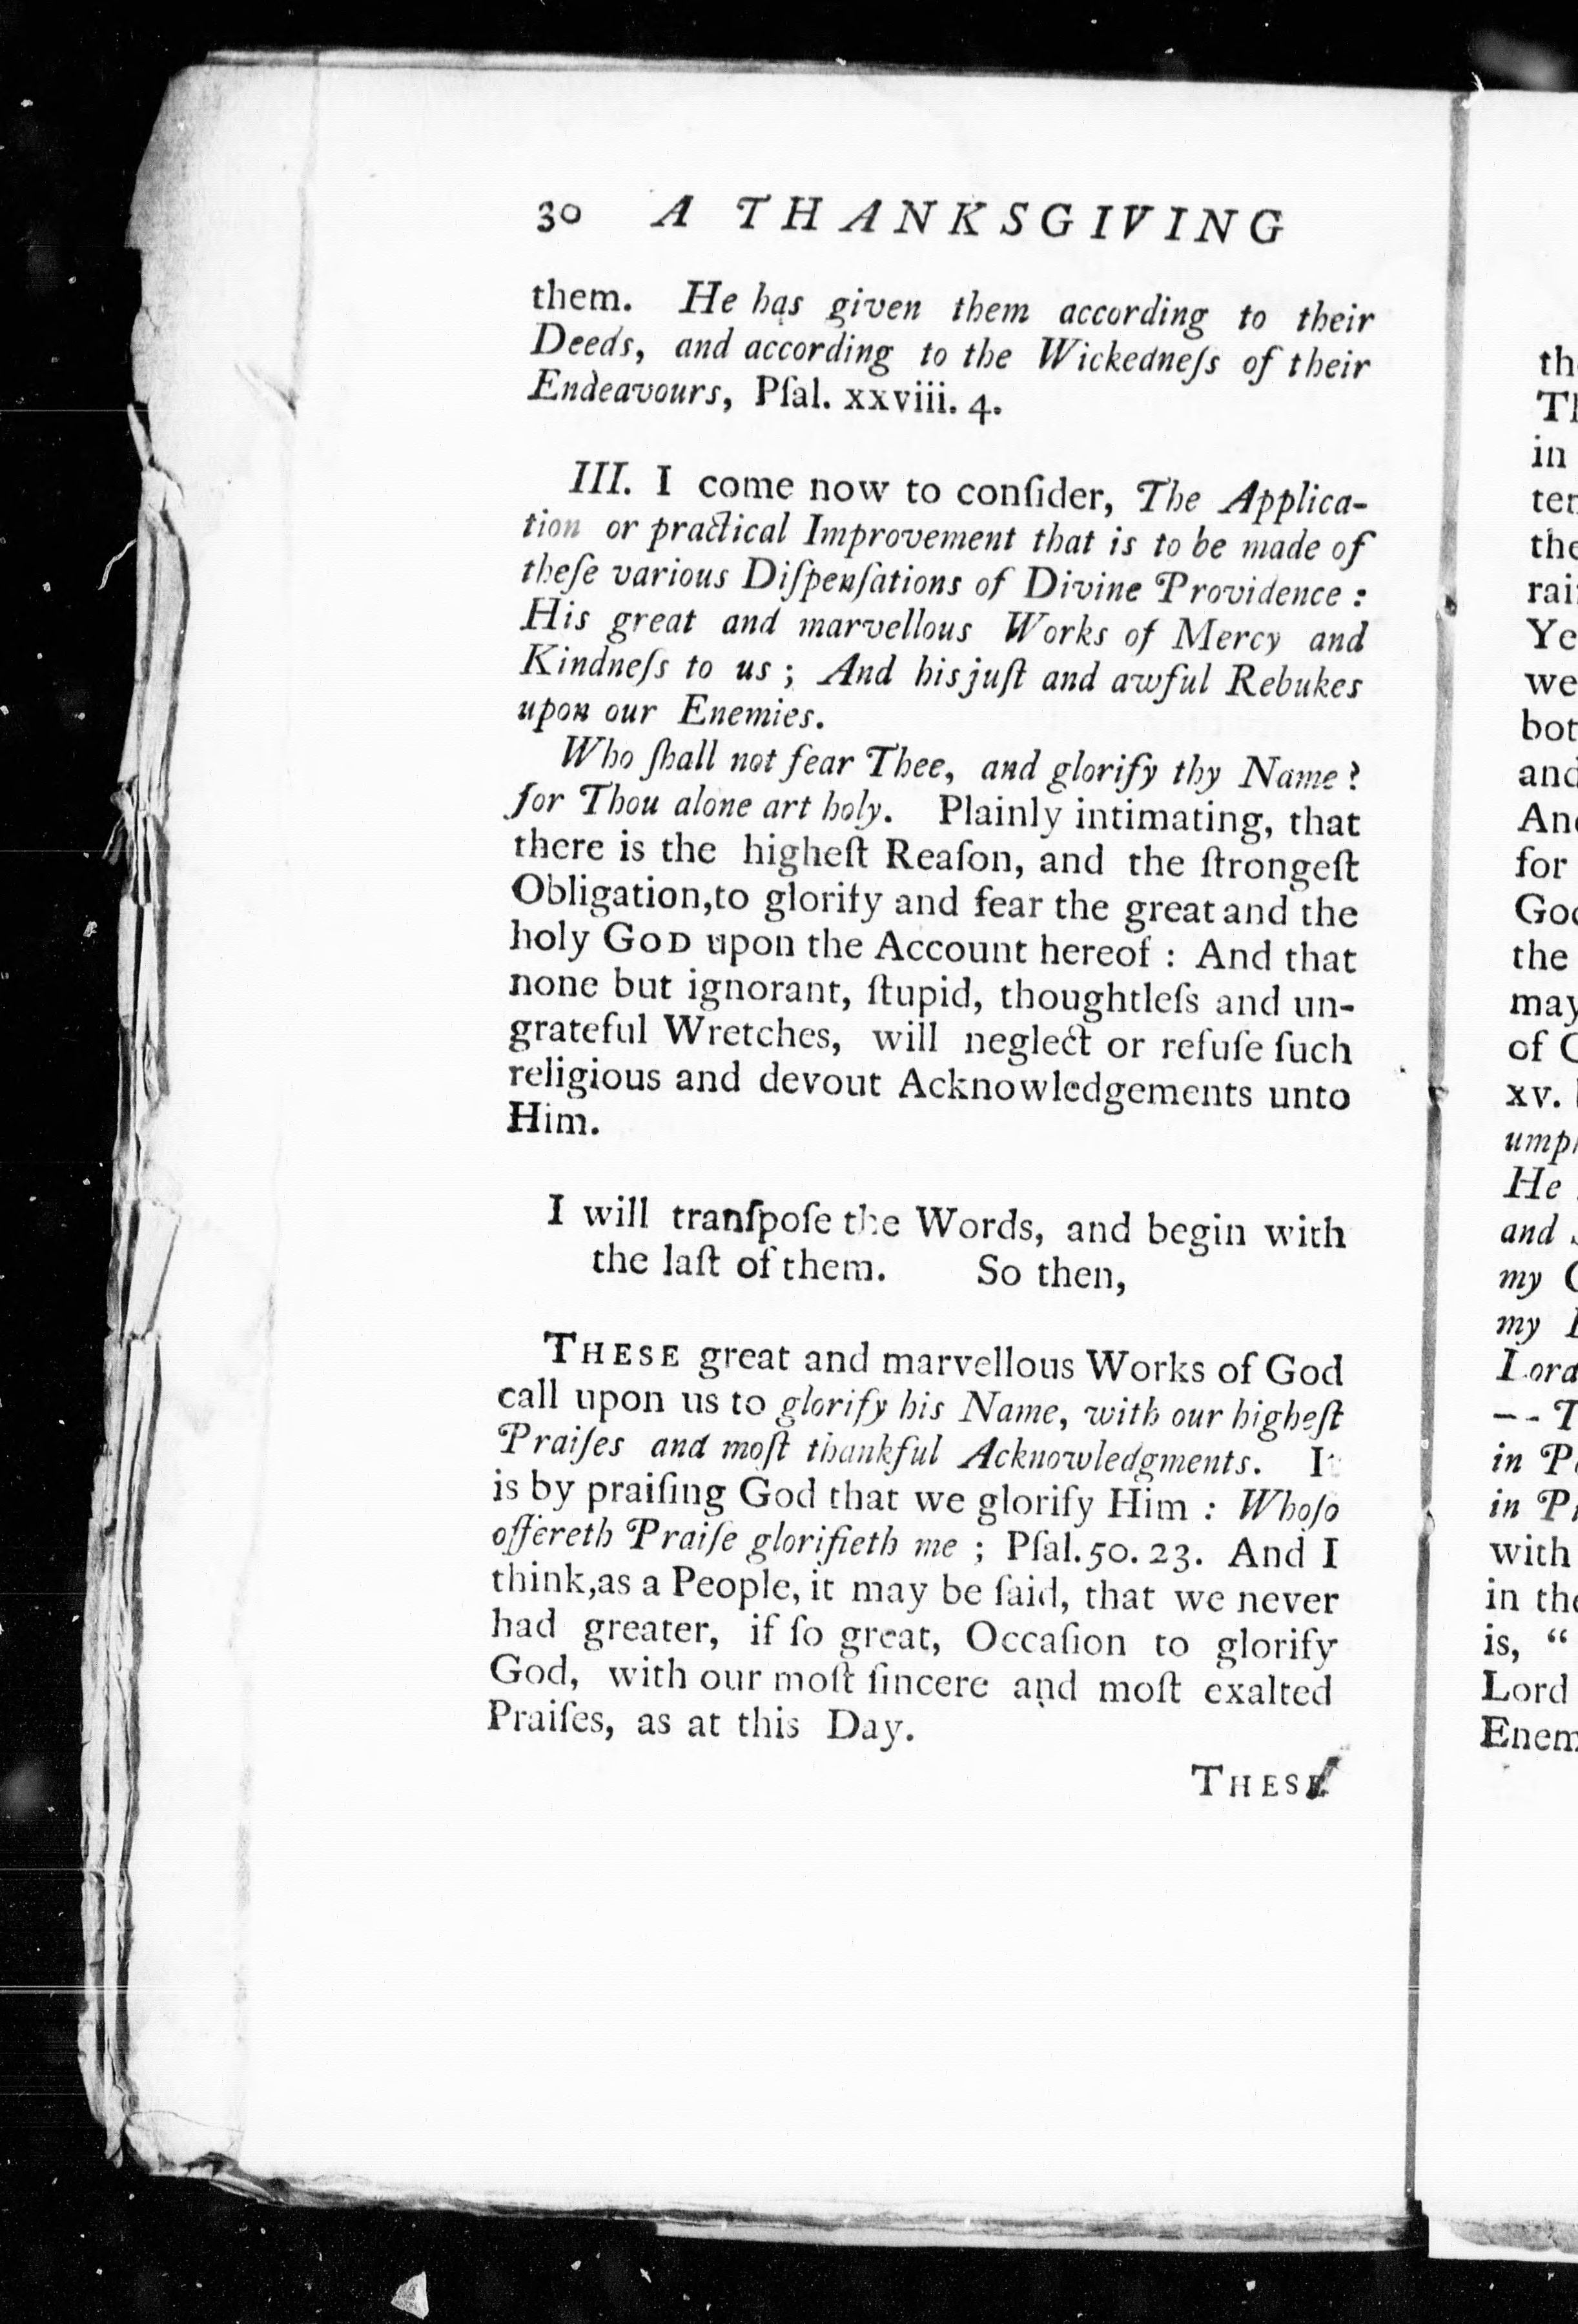 30 A THANKSGIVING
them. He has given them according to their
Deeds, and according to the Wickedneſs of their
Endeavours, Pſal. xxviii. 4.
III. I come now to conſider, The Applica-
tion or practical Improvement that is to be made of
theſe various Diſpenſations of Divine Providence :
His great and marvellous Works of Mercy and
Kindneſs to us ; And his juſt and awful Rebukes
upon our Enemies.
Who ſhall not fear Thee, and glorify thy Name ?
for Thou alone art holy. Plainly intimating, that
there is the higheſt Reaſon, and the ſtrongeſt
Obligation,to glorify and fear the great and the
holy GOD upon the Account hereof : And that
none but ignorant, ſtupid, thoughtleſs and un-
grateful Wretches, will neglect or refuſe ſuch
religious and devout Acknowledgements unto
Him.
I will tranſpoſe the Words, and begin with
the laſt of them. So then,
THESE great and marvellous Works of God
call upon us to glorify his Name, with our higheſt
Praiſes and moſt thankful Acknowledgments. It
is by praiſing God that we glorify Him : Whoſo
offereth Praiſe glorifieth me ; Pſal. 50. 23. And I
think,as a People, it may be ſaid, that we never
had greater, if ſo great, Occaſion to glorify
God, with our moſt ſincere and moſt exalted
Praiſes, as at this Day.
THESE
in
for
the
of
xv.
He
and
my
my
in
in
with
is, “
Lord